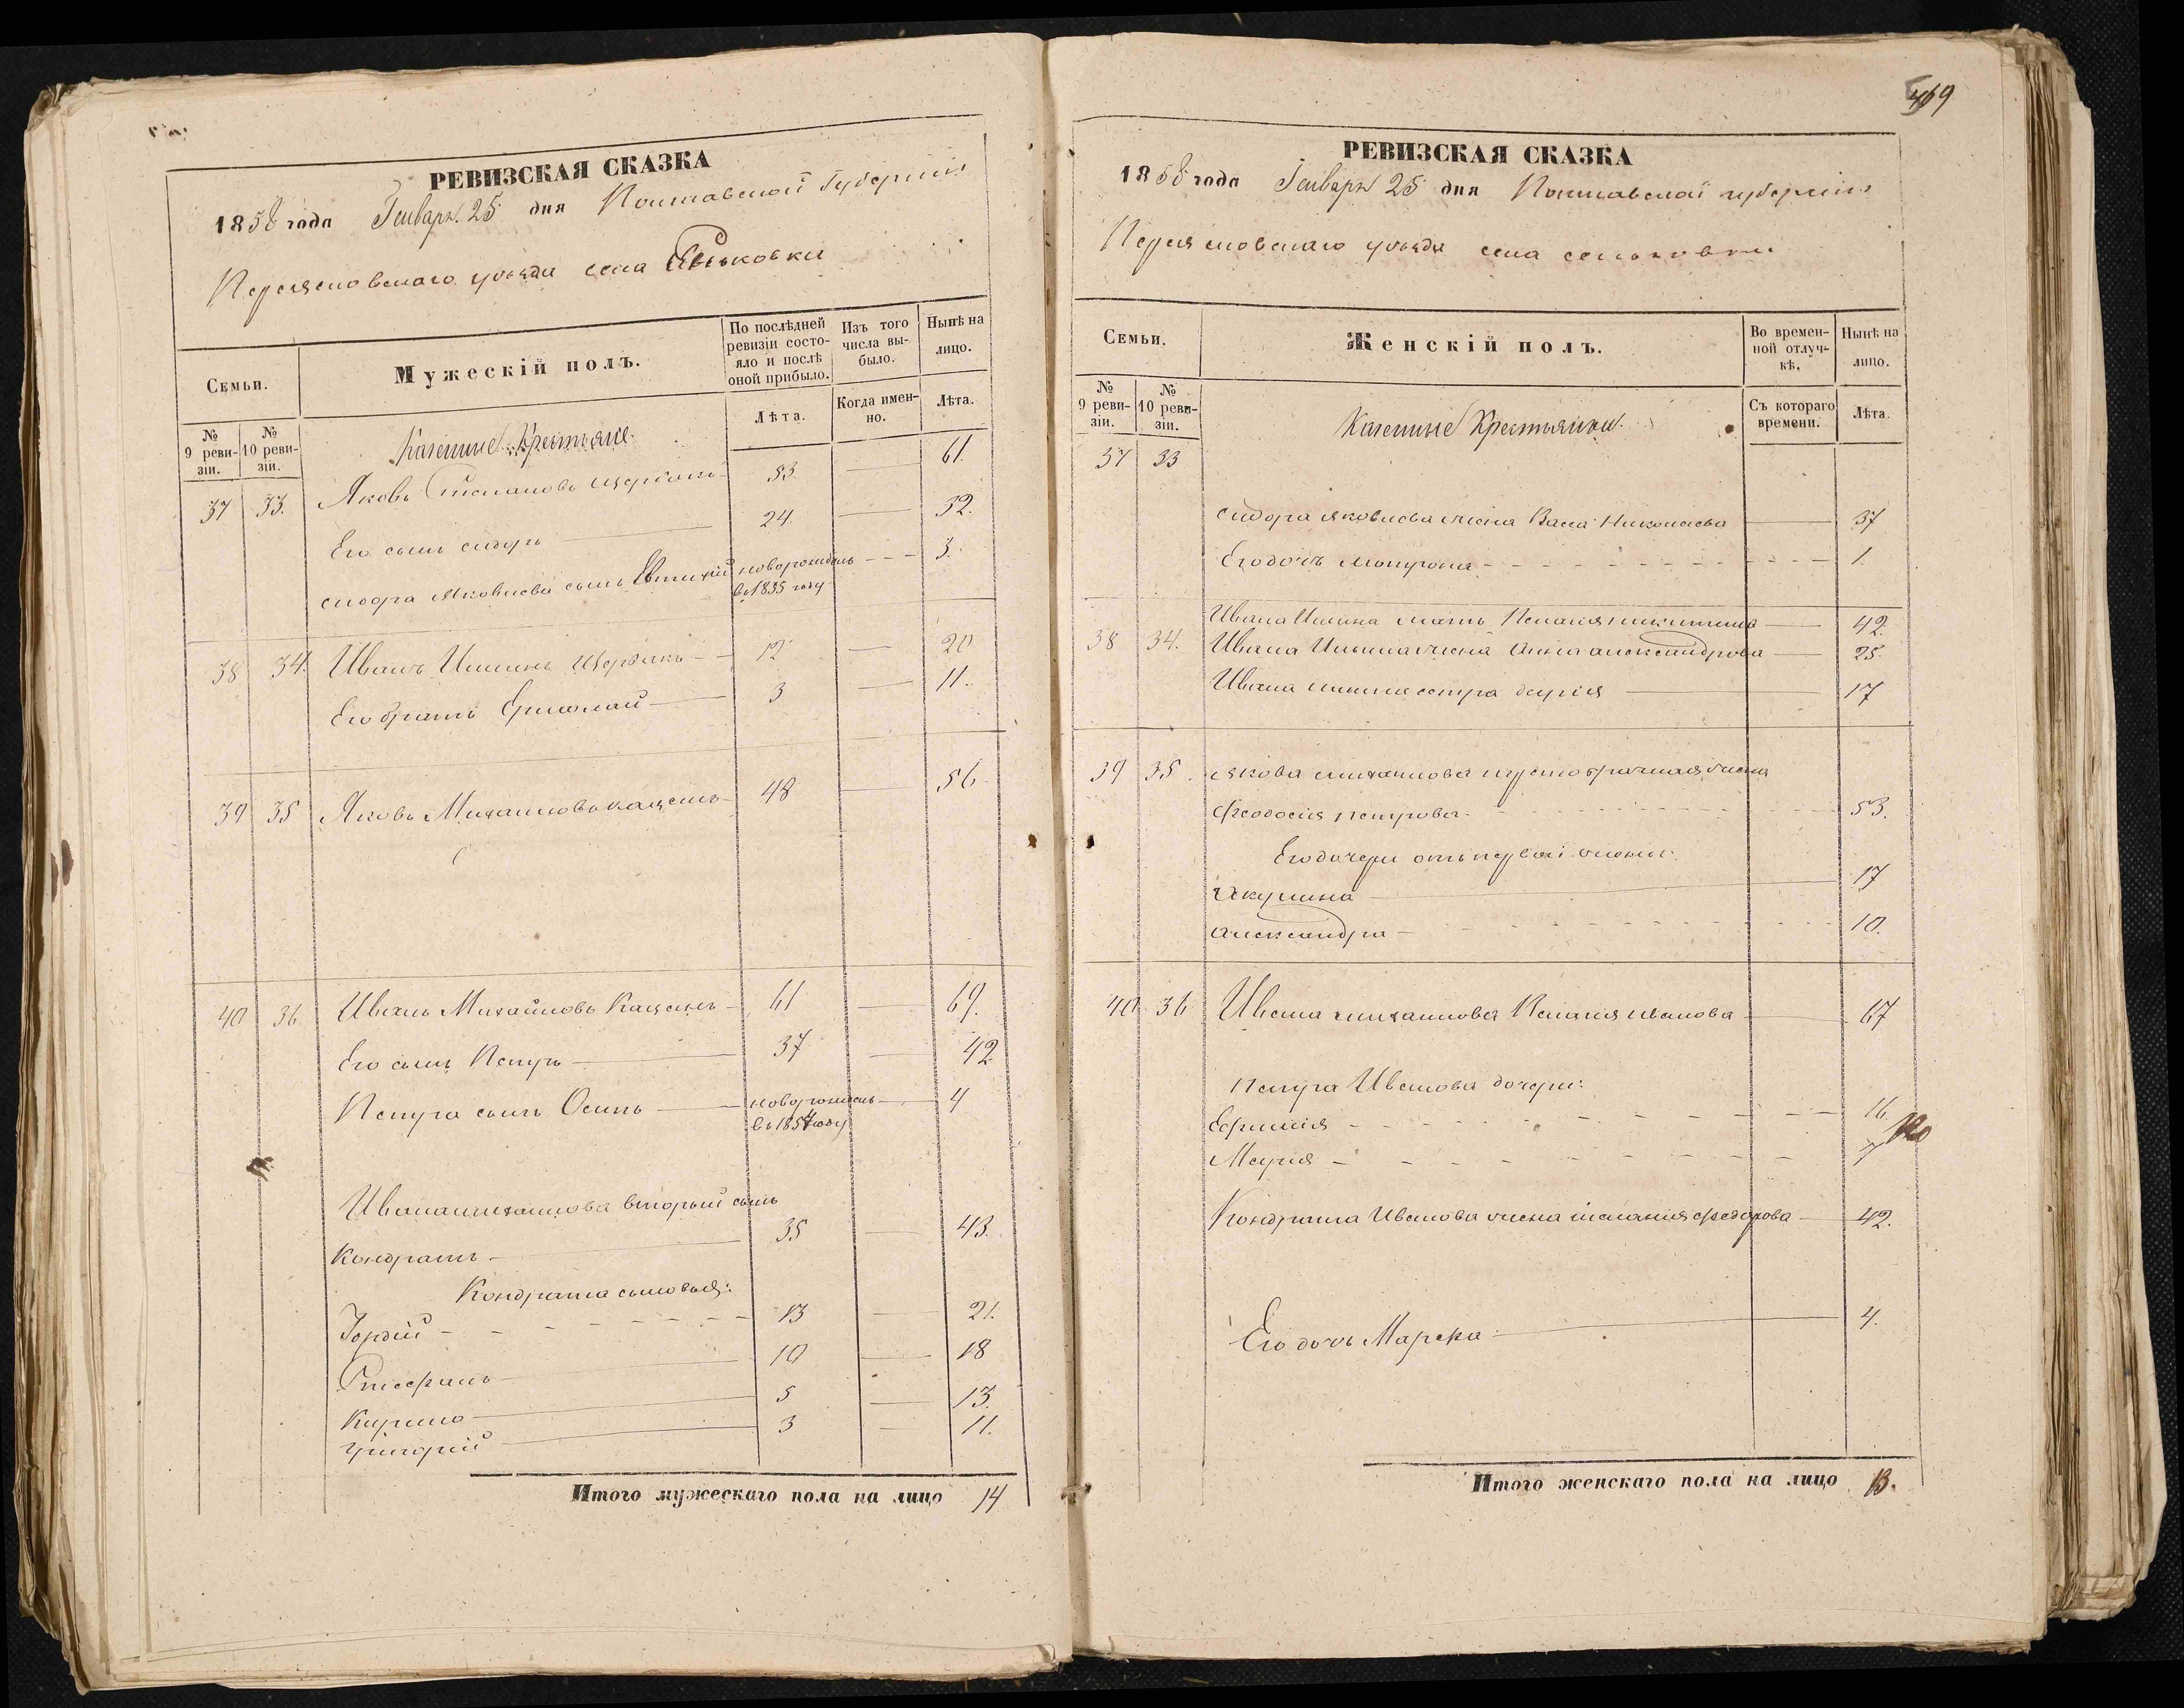 РЕВИЗСКАЯ СКАЗКА
1858 года Генваря 25 дня Полтавской Губернии
Переясловскаго уѣзда села Сеньковки
Семьи.
Мужескій полъ.
По послѣдней ревизіи состояло и послѣ оной прибыло.
Изъ того числа выбыло.
Нынѣ на лицо.
№ 9 ревизіи.
№ 10 ревизіи.
Лѣта.
Когда именно.
Лѣта.
Казенные Крестьяне
37 33. Яковъ Степановъ 53 61.
Его сынъ Сидоръ 24. 32.
Сидора Яковлева сынъ Евтихій новорожденъ 3.
в 1855 году
38 34. Иванъ Ильинъ 12 20
Его братъ Ермолай 3 11.
39 35 Яковъ Михайловъ 48 56
40 36 Иванъ Михайловъ 61 69.
Его сынъ Петръ 37 42
Петра сынъ Осипъ новорожденъ 4
въ 1854 году
Ивана Михайлова вторый сынъ
Кондратъ 35 43.
Кондрата сыновья:
Гордій 13 21.
Стефанъ 10 18
Кирило 5 13.
Григорій 3 11.
Итого мужескаго пола на лицо 14
469
РЕВИЗСКАЯ СКАЗКА
1858 года Генваря 25 дня Полтавской губерніи
Переясловскаго уѣзда села Сеньковки
Семьи.
Женскій полъ.
Во временной отлучкѣ.
Нынѣ на лицо.
№ 9 ревизіи.
№ 10 ревизіи.
Съ котораго времени.
Лѣта.
Казенные Крестьянки.
37 33
Сидора Яковлева жена Васса Николаева 37
Его дочь Мотрона 1.
Ивана Ильина мать Пелагія Никитина 42.
38 34. Ивана Ильина жена Анна Александрова 25.
Ивана Ильина сестра Дарія 17
39 35. Якова Михайлова жена
Феодосія Петрова 53.
Его дочери отъ первой жены:
Акулина 17
Александра 10.
40 36 Ивана Михайлова Пелагія Иванова 67
Петра Иванова дочери:
Ефимія 16.
Марія 7
Кондрата Иванова жена Меланія Федорова 42.
Его дочь Марфа 4.
Итого женскаго пола на лицо 13.